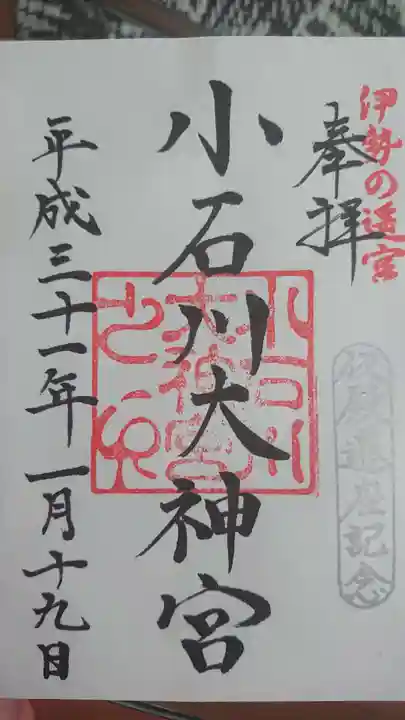 伊勢の遥宮
奉拝
遷座記念
小石川大神宮
小石川大神宮之印
平成三十一年一月十九日